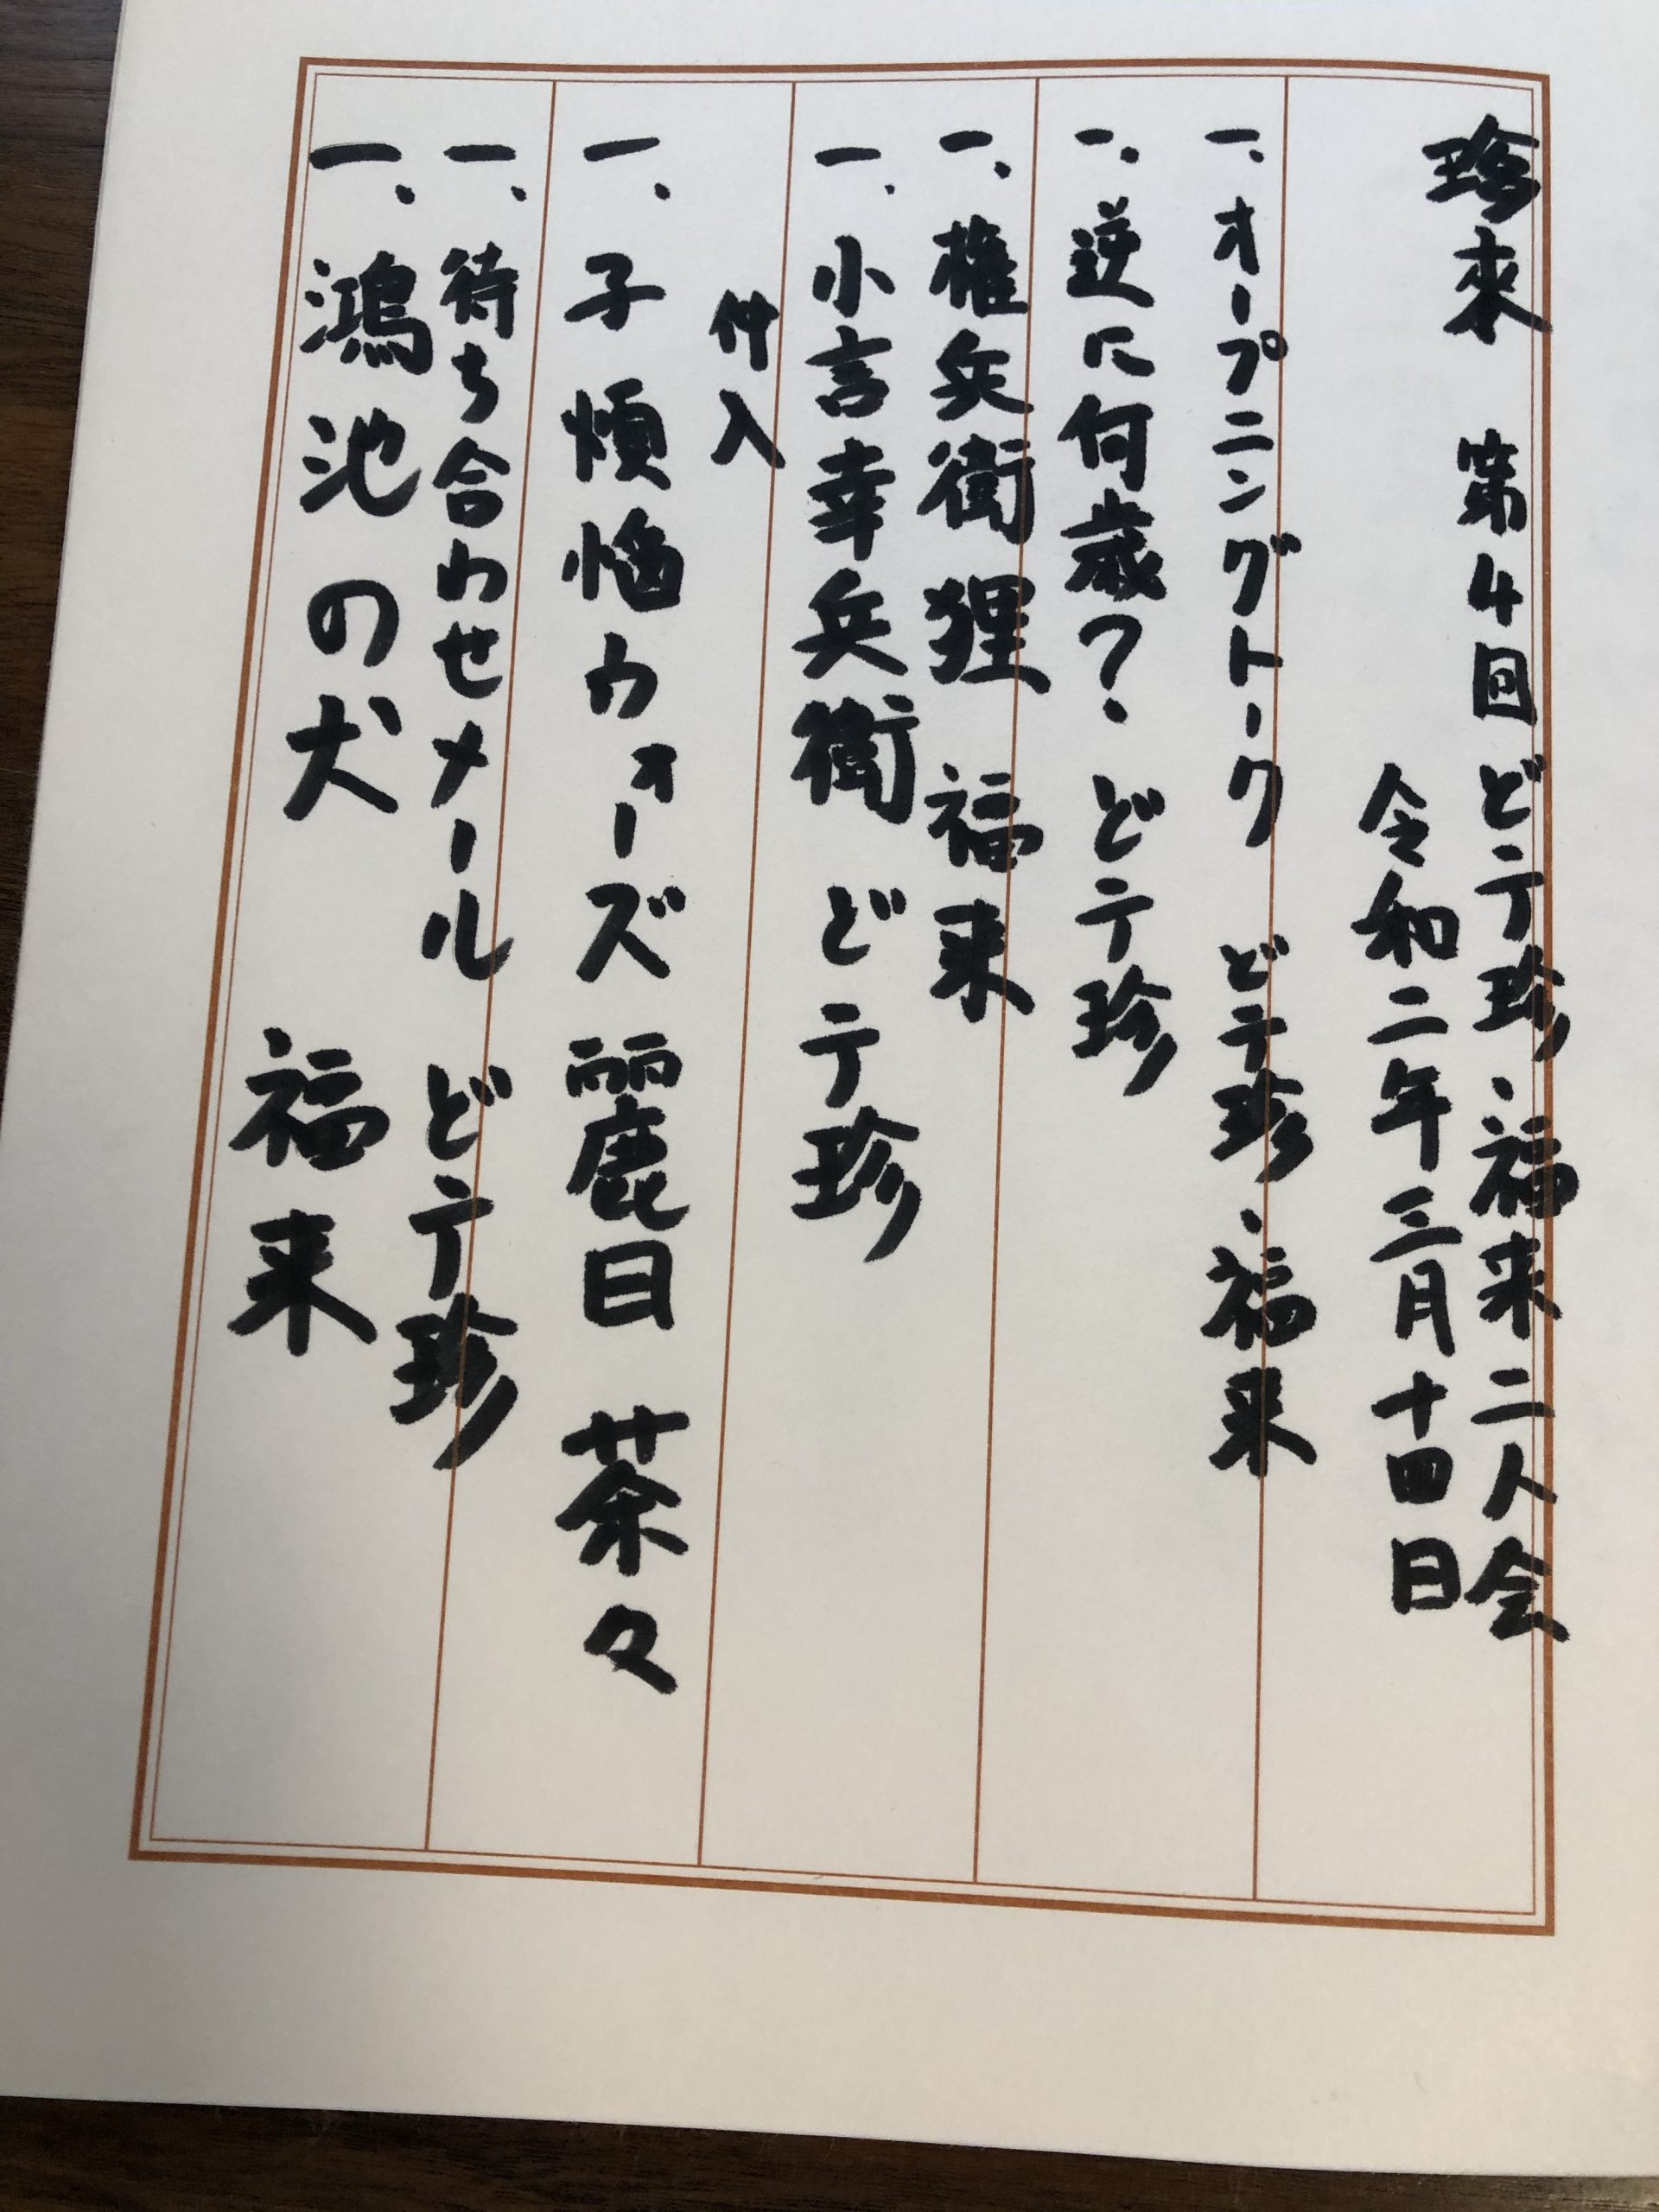 珍來 第4回どテ珍・福来二人会
令和二年三月十四日
一、オープニングトーク どテ珍・福来
一、逆に何歳? どテ珍
一、権兵衛狸 福来
一、小言幸兵衛 どテ珍
仲入
一、子煩悩ウォーズ 麗日 茶々
一、待ち合わせメール どテ珍
一、鴻池の犬 福来